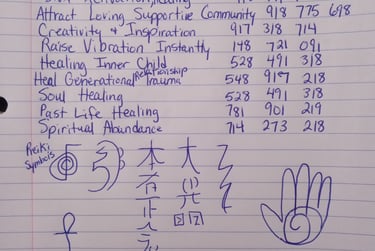 Attract Loving Supportive Community 918 775 698
Creativity & Inspiration 917 318 714
Raise Vibration Instantly 148 721 091
Healing Inner Child 528 491 318
Heal Generational Relationship Trauma 548 917 218
Soul Healing 528 491 318
Past Life Healing 781 901 219
Spiritual Abundance 714 273 218
Reiki
Symbols